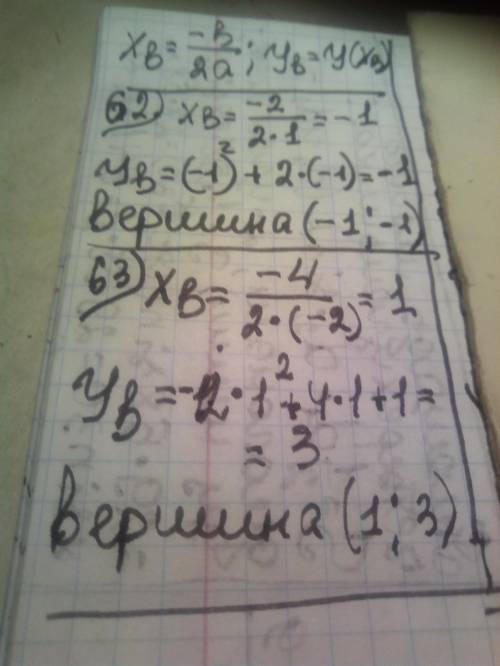 xв = -в/2a; yв = y(xв)
62) xв = -2/2·1 = -1
yв = (-1)² + 2·(-1) = -1
вершина (-1; -1)
63) xв = -4/2·(-2) = 1
yв = -2·1² + 4·1 + 1 =
= 3
вершина (1; 3)